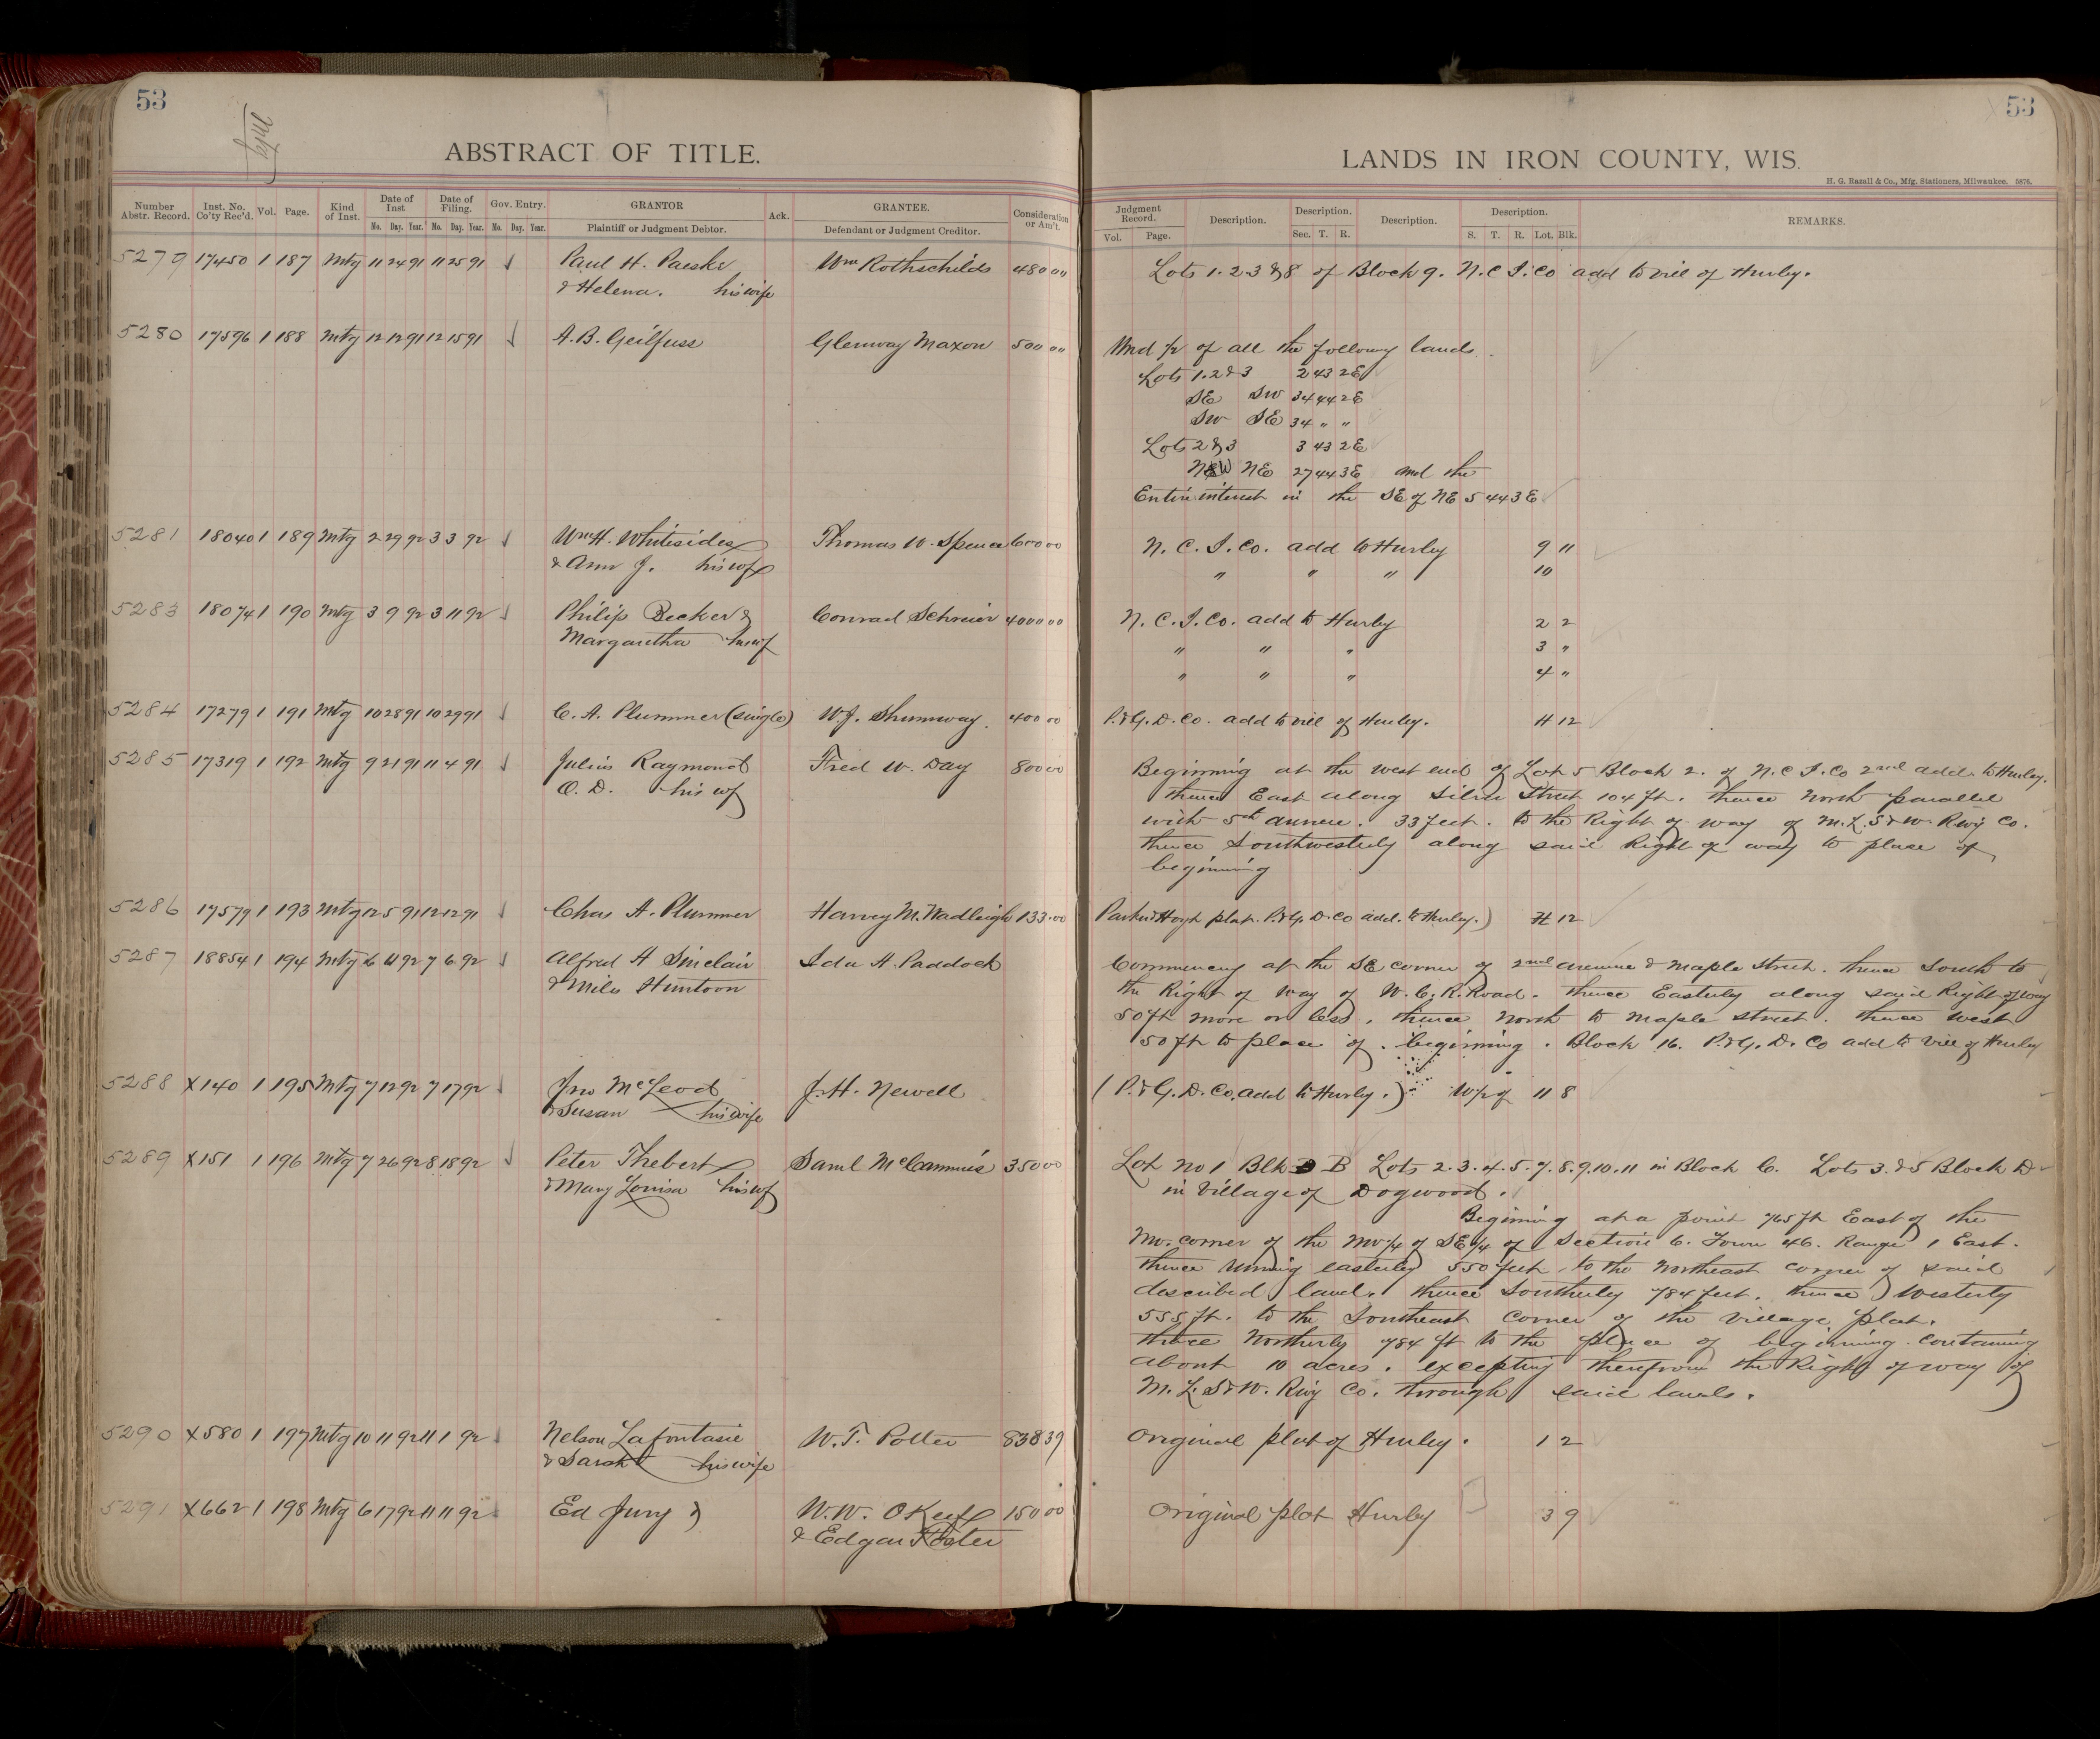 53
Mtg
ABSTRACT OF TITLE.
Number Abstr. Record. Inst. No. Co'ty Rec'd. Vol. Page. Kind of Inst. Date of Inst Date of Filing. Gov. Entry. GRANTOR Ack. GRANTEE. Consideration or Am't.
Mo. Day. Year. Mo. Day. Year. Mo. Day. Year. Plaintiff or Judgment Debtor. Defendant or Judgment Creditor.
5279 17450 1 187 Mtg 11 24 91 11 25 91 Paul H. Paeske Wm Rothschilds 480 00
& Helena. his wife
5280 17596 1 188 Mtg 12 12 91 12 15 91 A.B. Geilfuss Glenway Maxon 500 00
5281 18040 1 189 Mtg 2 29 92 3 3 92 Wm H. Whitesides Thomas W. Spence 600 00
& Ann J. his wf
5283 18074 1 190 Mtg 3 9 92 3 11 92 Philip Becker & Conrad Schreier 4000 00
Margaretha his wf
5284 17279 1 191 Mtg 10 28 91 10 29 91 C. A. Plummer (single) W.J. Shumway. 400 00
5285 17319 1 192 Mtg 9 21 91 11 4 91 Julius Raymond Fred W. Day 800 00
O. D. his wf
5286 17579 1 193 Mtg 12 5 91 12 12 91 Chas A. Plummer Harvey M. Wadleigh 133.00
5287 18854 1 194 Mtg 6 11 92 7 6 92 Alfred A Sinclair Ida A. Paddock
& Milo Huntoon
5288 X140 1 195 Mtg 7 12 92 7 17 92 Jno McLeod J.H. Newell
& Susan his wife
5289 X151 1 196 Mtg 7 26 92 8 18 92 Peter Thebert Saml McCammus 350 00
& Mary Louisa his wf
5290 X580 1 197 Mtg 10 11 92 11 1 92 Nelson Lafontasie W.T. Potter 838 39
& Sarah his wife
5291 X662 1 198 Mtg 6 17 92 11 11 92 Ed Jury & W.W. OKeefe 150 00
& Edgar Foster
53
LANDS IN IRON COUNTY, WIS.
H. G. Razall & Co., Mfg. Stationers, Milwaukee. 5876.
Judgment Record. Description. Description. Description. Description. REMARKS.
Vol. Page. Sec. T. R. S. T. R. Lot. Blk.
Lots 1. 2 3 & 8 of Block 9. N.C I. Co add to vill of Hurley.
Und 1/2 of all the following lands
Lots 1. 2 & 3 2 43 2E
SE SW 34 44 2E
SW SE 34 " "
Lots 2 & 3 3 43 2E
NW NE 27 44 3E and the
Entire interest in the SE of NE 5 44 3E
N. C. I. Co. add to Hurley 9 11
" " " 10
N. C. I. Co. add to Hurley 2 2
" " " 3 "
" " " 4 "
P. & G. D. Co. add to vill of Hurley. H 12
Beginning at the west end of Lot 5 Block 2. of N.C I. Co 2nd add. to Hurley.
thence East along Silver Street 104 ft. thence North parallel
with 5th avenue. 33 feet. to the Right of way of M.L.S & W. Rwy Co.
thence Southwesterly along said Right of way to place of
begining
Parker & Hoyt plat. P. & G. D. Co add. to Hurley.) H 12
Commencing at the SE corner of 2nd avenue & Maple Street. thence South to
the Right of Way of W. C. R. Road. thence Easterly along said Right of way
50 ft more or less, thence North to Maple street. thence West
50 ft to place of beginning. Block 16. P. & G. D. Co add to vill of Hurley
(P. & G. D. Co. add to Hurley.) W 1/2 of 11 8
Lot No 1 Blk B Lots 2. 3. 4. 5. 7. 8. 9. 10. 11 in Block C. Lots 3. & 5 Block D
in Village of Dogwood.
Begining at a point 765 ft East of the
NW. corner of the NW 1/4 of SE 1/4 of Section 6. Town 46. Range 1 East.
thence running easterly 550 feet, to the Northeast corner of said
described land. thence Southerly 784 feet. thence Westerly
555 ft. to the Southeast Corner of the Village plat.
thence Northerly 784 ft to the place of beginning. containing
about 10 acres. excepting therefrom the Right of way of
M. L. S & W. Rwy Co. through said lands.
Original plat of Hurley. 1 2
Original plat Hurley 3 9